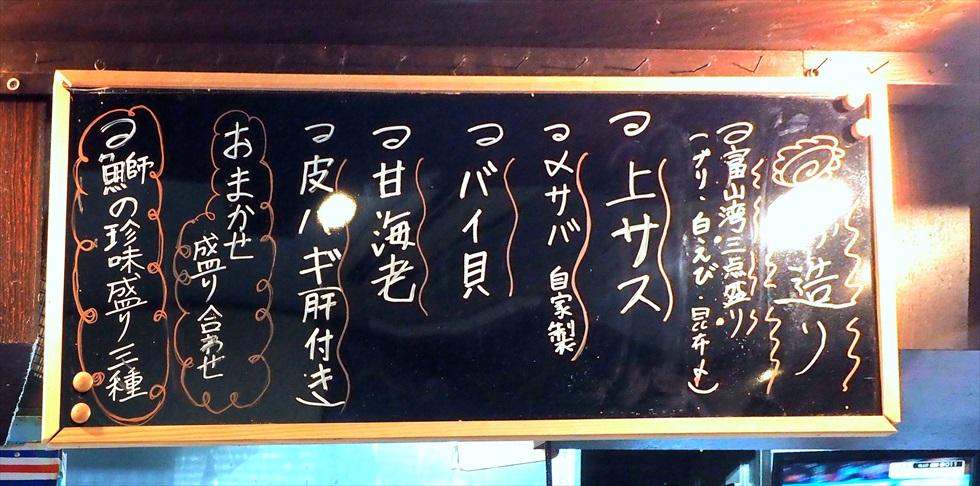 造り
富山湾三点盛り
（ブリ・白えび・昆布〆）
上サス
〆サバ 自家製
バイ貝
甘海老
皮ハギ（肝付き）
おまかせ
盛り合わせ
鰤の珍味盛り三種